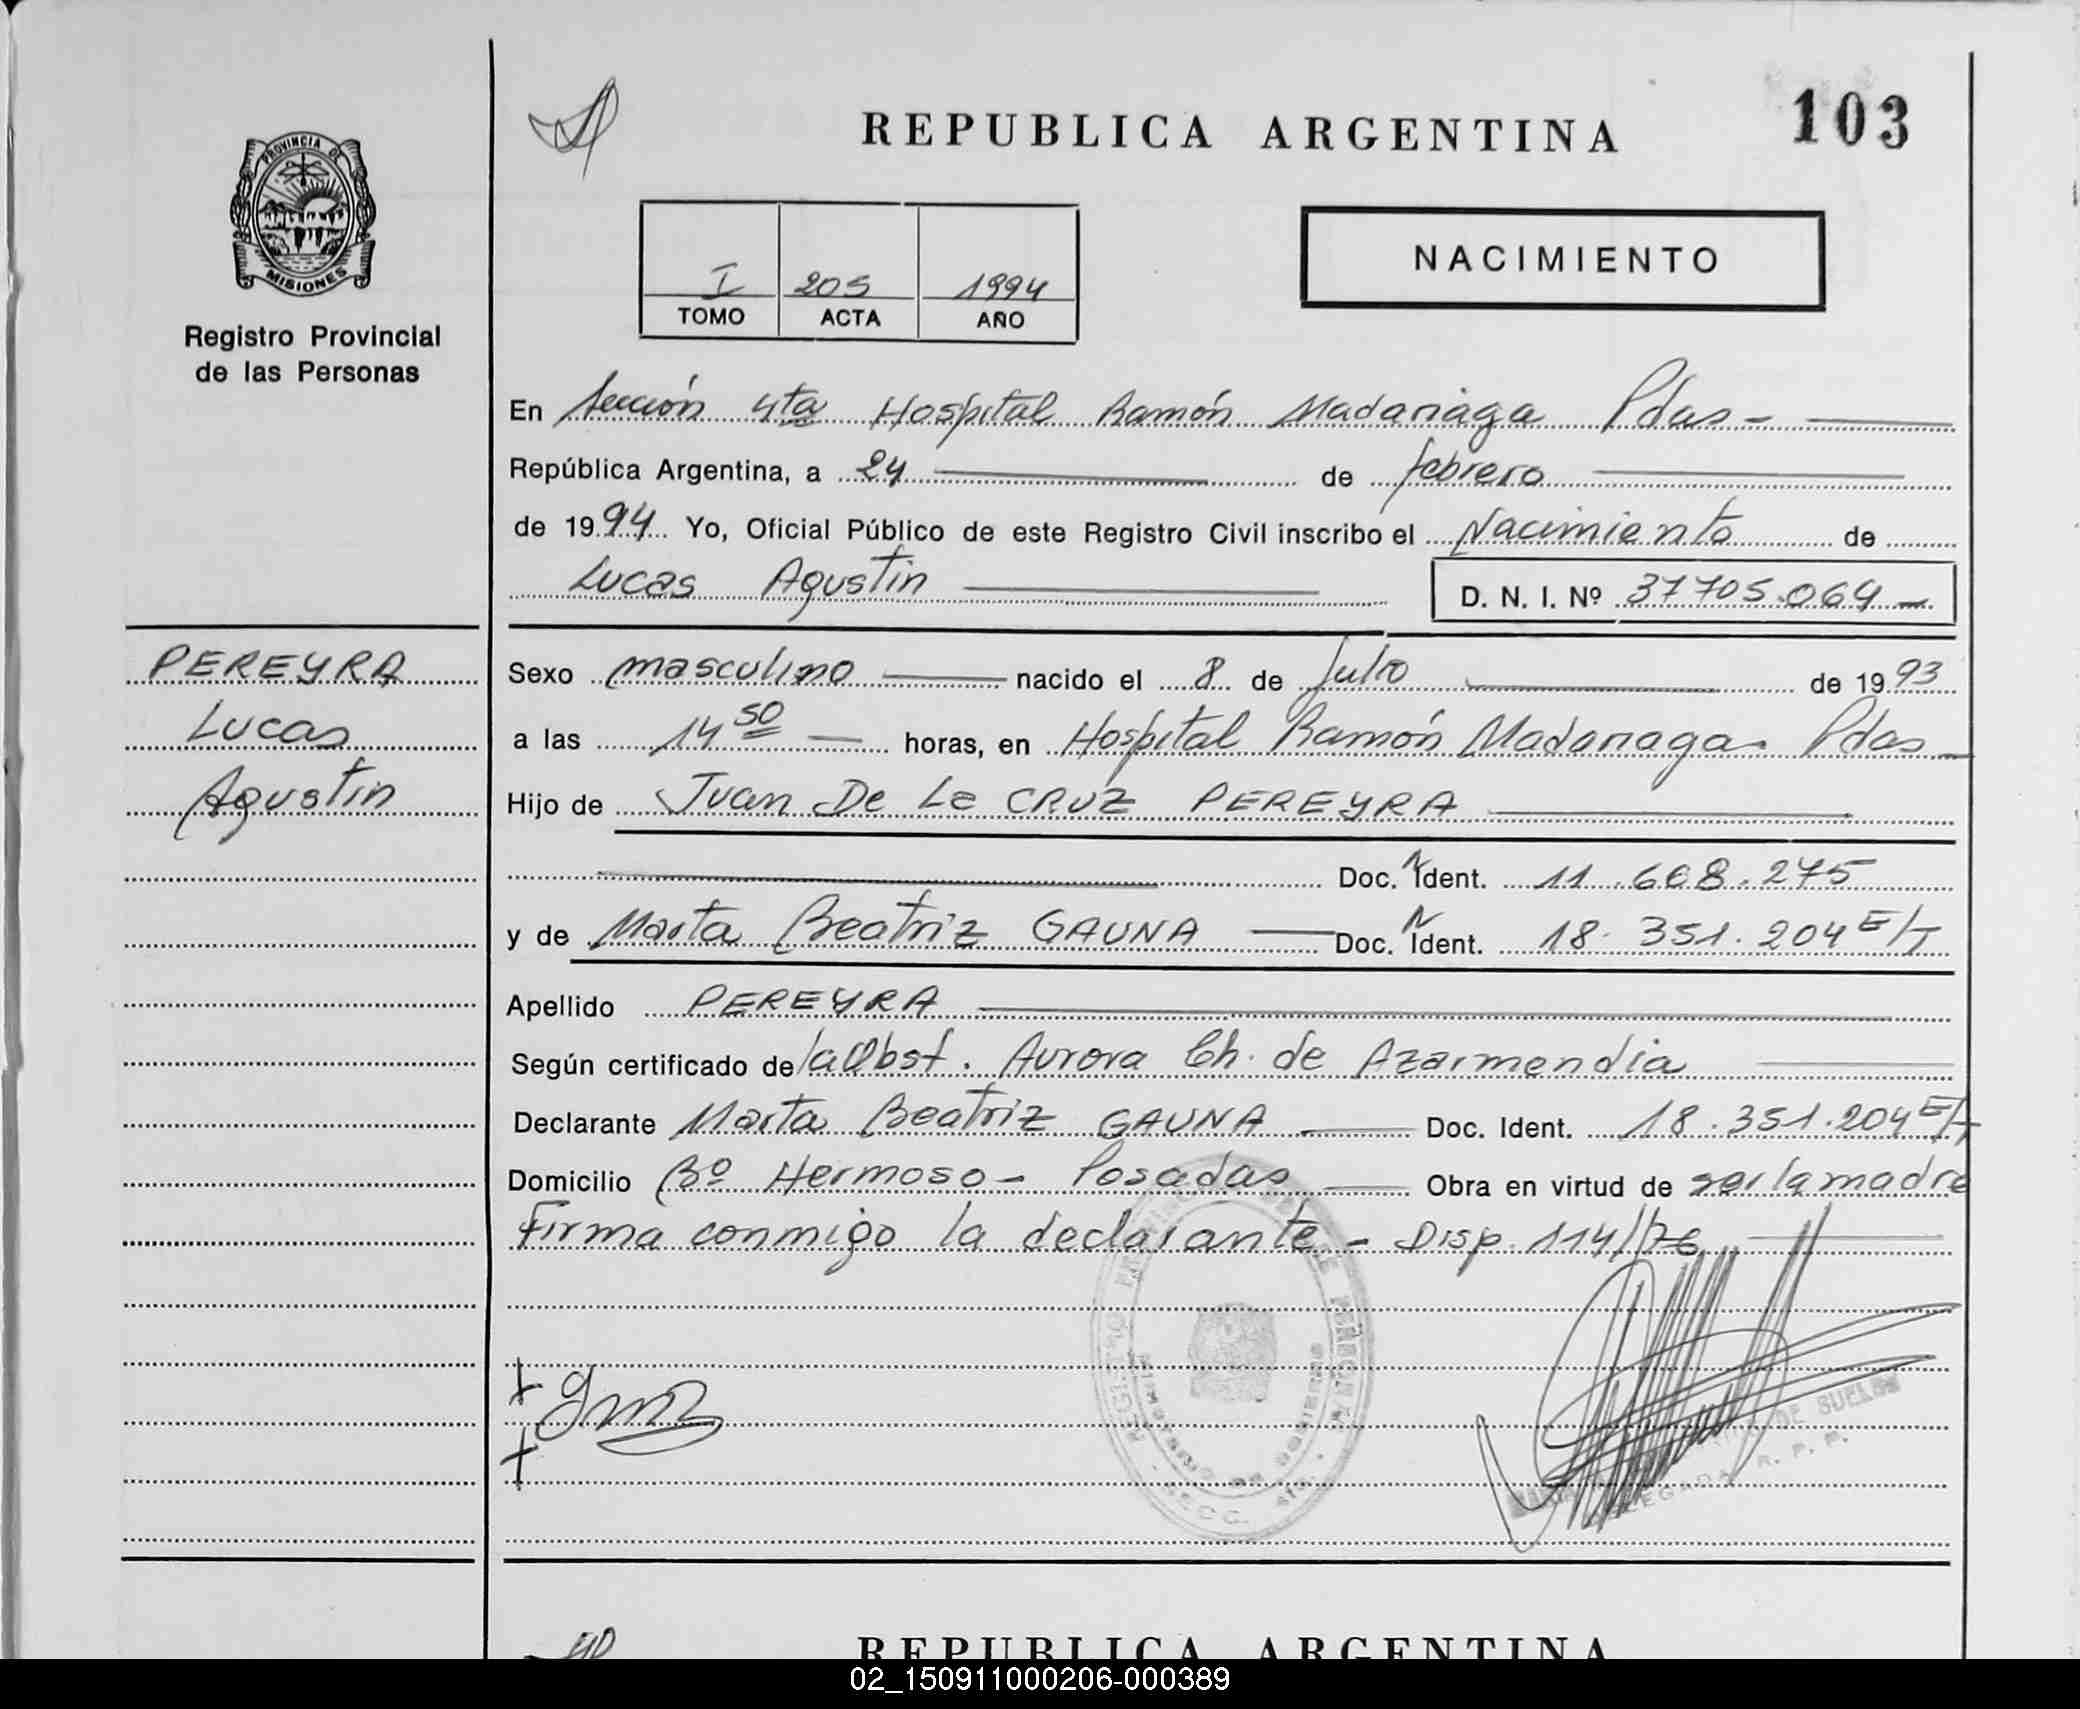 REPUBLICA ARGENTINA
103
PROVINCIA DE
MISIONES
Registro Provincial
de las Personas
I 205 1994
TOMO ACTA AÑO
NACIMIENTO
En Sección 4ta Hospital Ramón Madariaga Pdas-
República Argentina, a 24 de febrero
de 1994 Yo, Oficial Público de este Registro Civil inscribo el Nacimiento de
Lucas Agustin D. N. I. Nº 37705.069-
PEREYRA
Lucas
Agustin
Sexo masculino nacido el 8 de Julio de 1993
a las 14 50 horas, en Hospital Ramón Madariaga- Pdas-
Hijo de Juan De La CRUZ PEREYRA
Doc. N Ident. 11.608.275
y de Marta Beatriz GAUNA Doc. N Ident. 18.351.204 E/T
Apellido PEREYRA
Según certificado de la Obst. Aurora Ch. de Azarmendia
Declarante Marta Beatriz GAUNA Doc. Ident. 18.351.204 E/T
Domicilio Bº Hermoso- Posadas Obra en virtud de ser la madre
Firma conmigo la declarante- Disp. 114/76
DE SUELDO
DELEGADA R. P. P.
REPUBLICA ARGENTINA
02_150911000206-000389